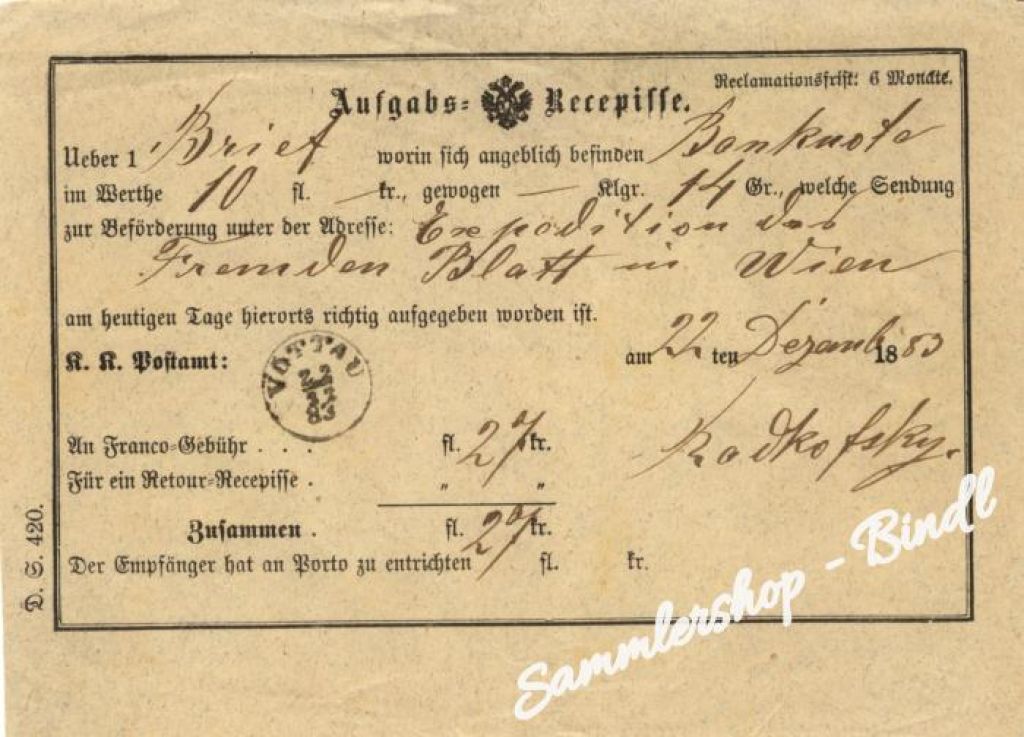 Reclamationsfrist: 6 Monate.
Aufgabs= Recepisse.
Ueber 1 Brief worin sich angeblich befinden Banknote
im Werthe 10 fl. — kr., gewogen — Klgr. 14 Gr., welche Sendung
zur Beförderung unter der Adresse: Expedition des
Fremden Blatt in Wien
am heutigen Tage hierorts richtig aufgegeben worden ist.
am 22 ten Dezemb 1883
K. K. Postamt:
VÖTTAU
22
12
83
An Franco=Gebühr . . . fl. 27 kr.
Radkofsky.
Für ein Retour=Recepisse . " "
Zusammen . fl. 27 kr.
Der Empfänger hat an Porto zu entrichten fl. kr.
D. S. 420.
Sammlershop - Bindl